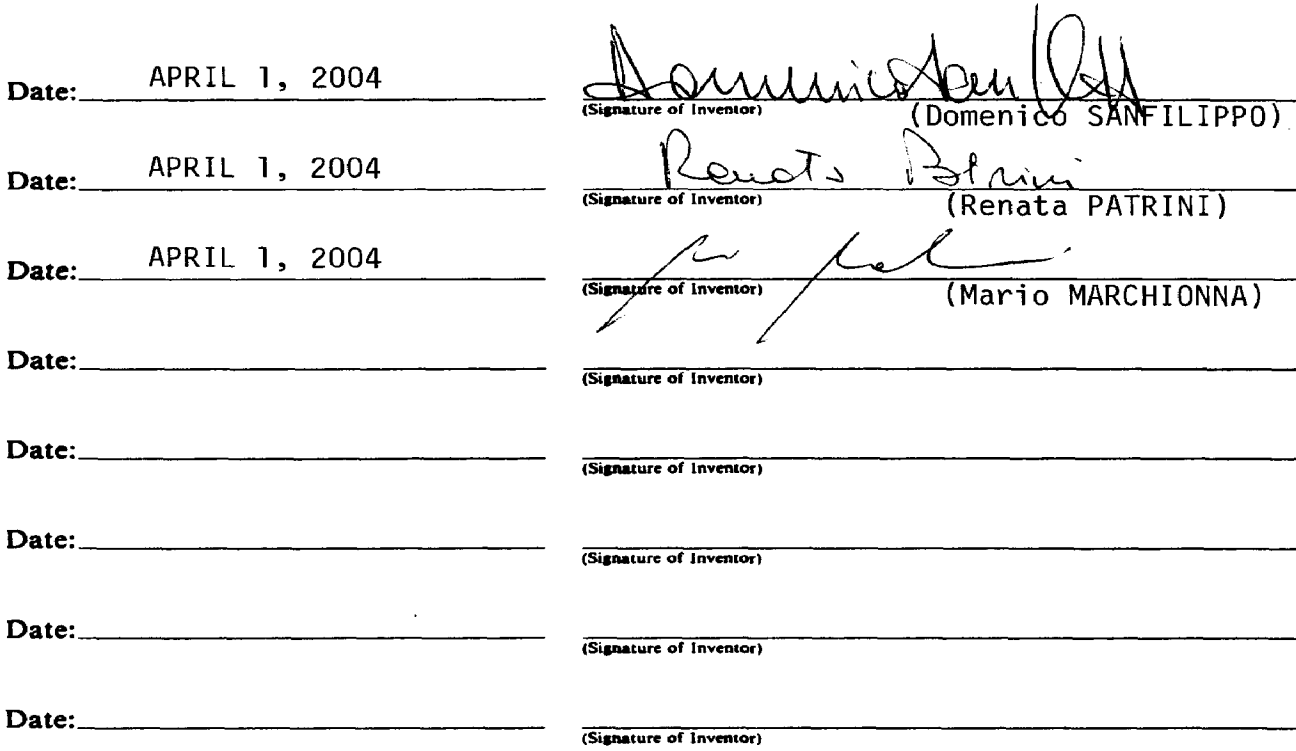 Date: APRIL 1, 2004
(Signature of Inventor) (Domenico SANFILIPPO)
Date: APRIL 1, 2004
Renata Patrini
(Signature of Inventor) (Renata PATRINI)
Date: APRIL 1, 2004
(Signature of Inventor) (Mario MARCHIONNA)
Date:
(Signature of Inventor)
Date:
(Signature of Inventor)
Date:
(Signature of Inventor)
Date:
(Signature of Inventor)
Date:
(Signature of Inventor)